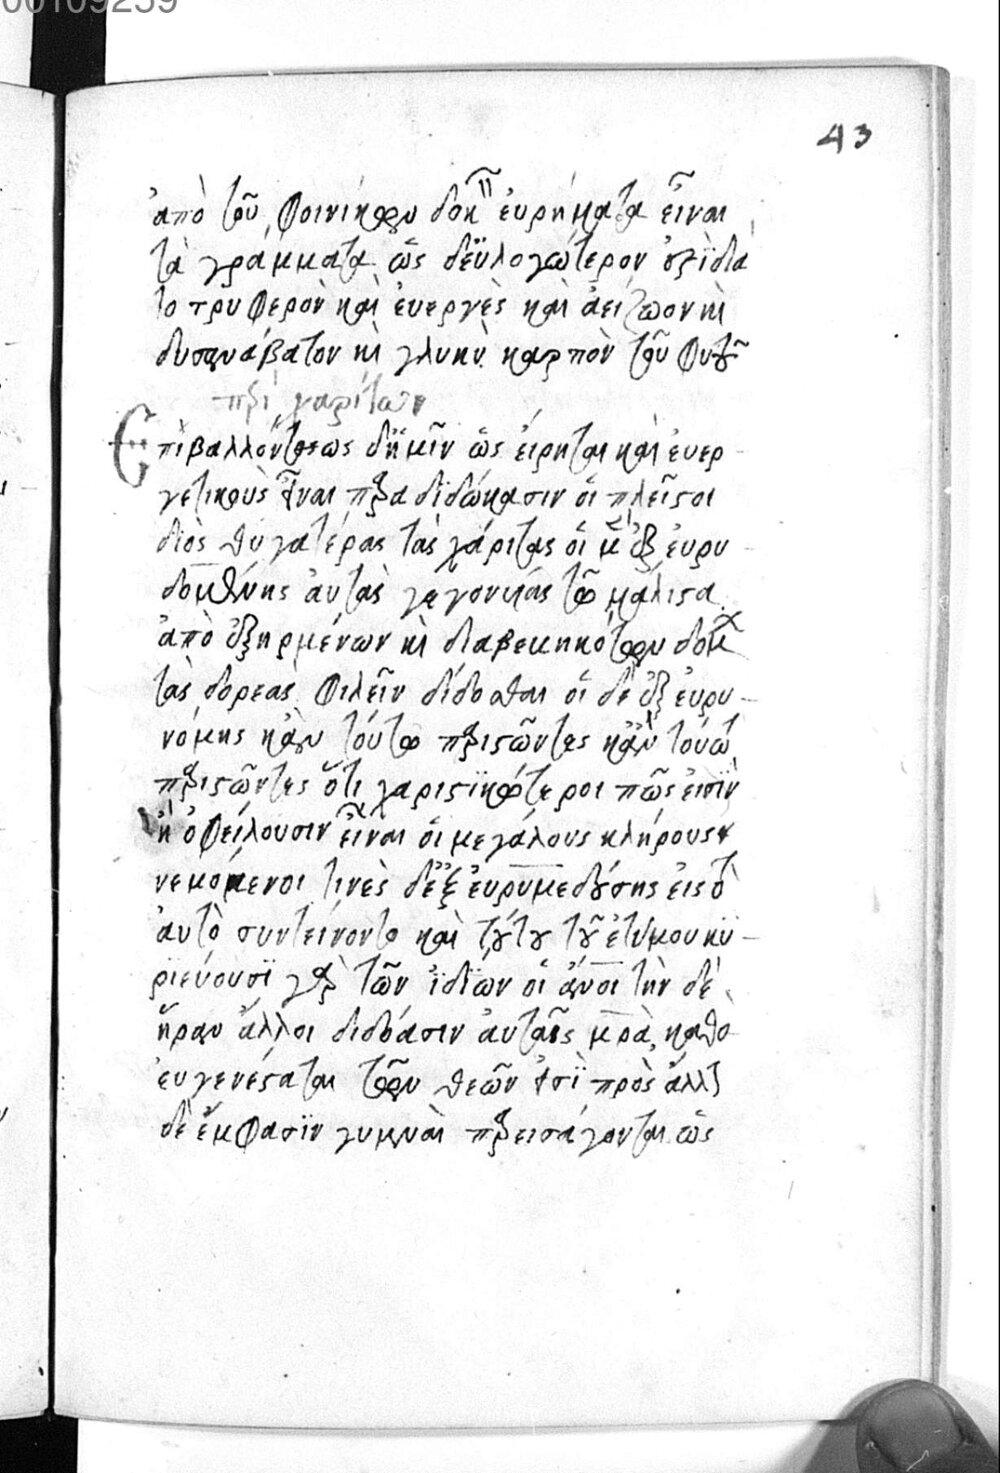 00109259
43
ἀπὸ τοῦ φοινίκων δοκ ἐυρήματα εἶναι
τὰ γράμματα ὡς δεϋλογώτερον διὰ
το τρυφερὸν καὶ ἐυεργὲς καὶ ἀείζωον κὶ
δυσανάβατον κὶ γλυκὺ καρπὸν τοῦ φυτοῦ
περὶ χαρίτων
Ἐπιβαλλόντως δἡμῖν ὡς ἐίρηται καὶ ἐυερ
γετικοὺς εἶναι παραδϊδώκασιν ὁι πλεῖστοι
διὸς θυγατέρας τὰς χάριτας ὁι μ ἐξ ἐυρυ
δομθήνης ἀυτὰς γεγονυίας τῶ μάλιστα
ἀπὸ ἐξηρμένων κὶ διαβεκηκότων δομ
τὰς δορεας φιλεῖν δίδοσθαι ὁι δὲ ἐξ ἐυρυ
νόμης καὶ τούτω παριστῶντες καὶ τούω
παριστῶντες ὅτι χαριστϊκώτεροι πῶς ἐισϊν
ἢ ὀφείλουσιν εἶναι ὁι μεγάλους κλήρους
νεμόμενοι τινὲς δἐξ ἐυρυμεδούσης ἐις τὸ
ἀυτὸ συντείνοντο καὶ τούτου τοῦ ἐτύμου κϋ
ρϊεύουσϊ γὰρ τῶν ἰδϊων ὁι ἄνοι τὴν δὲ
ἥραν ἄλλοι διδόασιν ἀυταῖς μρὰ καθο
ἐυγενέσταται τῶν θεῶν ἐσϊ πρὸς ἄλλ
δὲ ἔμφασϊν γυμναὶ παρεισάγονται ὡς